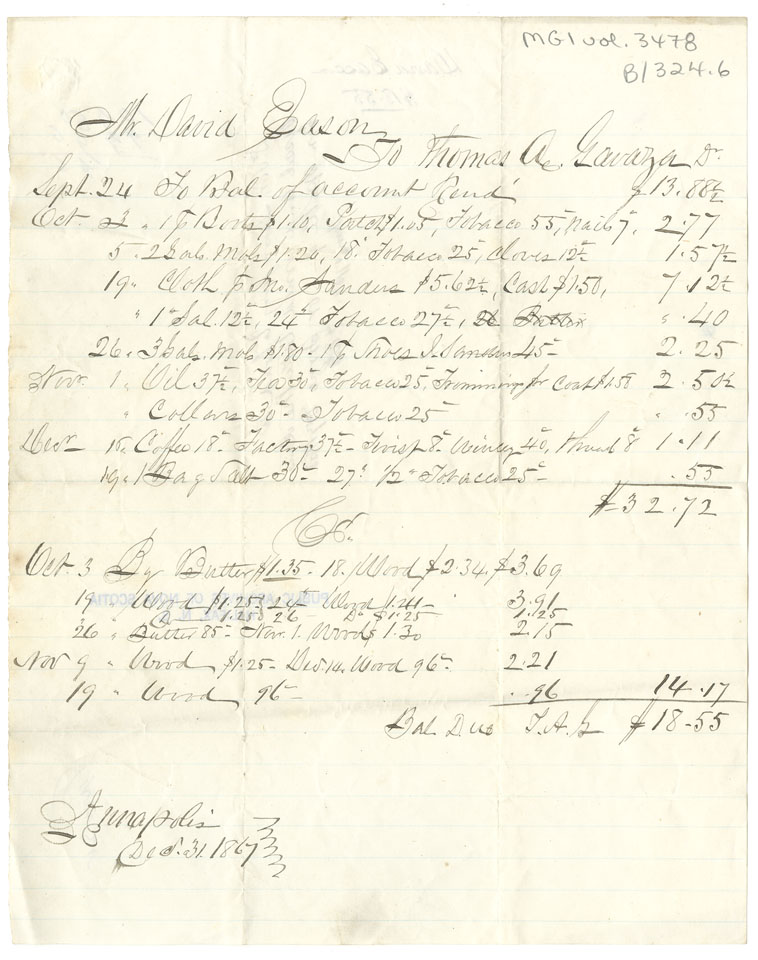 MG1 vol. 3478
B/324.6
Mr. David Eason
To Thomas A. Gavaza Dr.
Sept. 24 To Bal. of account Rend' $13.88½
Oct. 2 " 1 p Boots $1.10, Patch $1.05, Tobacco 55, Nails 7, 2.77
5 " 2 Gal. Mols $1.20, 18" Tobacco 25, Cloves 12½ 1.57½
19 " Cloth p Jno. Sanders $5.62½, Cash $1.50, 7.12½
" 1 Sal. 12½, 24" Tobacco 27½, " .40
26 " 3 Gal. Mols $1.80 - 1 p Shoes J. Sanders 45 2.25
Novr. 1 " Oil 37½, Tea 30, Tobacco 25, Trimming for Coat $1.58 2.50½
" Collars 30 - Tobacco 25 " .55
Decr 15 " Coffee 18 - Factory 37½ - Twist 8 - Wincey 40, Thread 8 1.11
19 " 1 Bag Salt 30 - 27" ½ " Tobacco 25 .55
$32.72
Cr.
Oct. 3 By Butter $1.35 - 18. Wood $2.34. $3.69
19 " Wood $1.25 24 Wood 1.41 3.91
Do 1.25 26 Do $1.25 1.25
26 " Butter 85 - Nov. 1. Wood $1.30 2.15
Nov 9 " Wood $1.25 - Dec 14. Wood 96 2.21
19 " Wood 96 .96 14.17
Bal Due T.A.G $18.55
PUBLIC ARCHIVES OF NOVA SCOTIA
HALIFAX, N. S.
Annapolis
Dec. 31. 1867